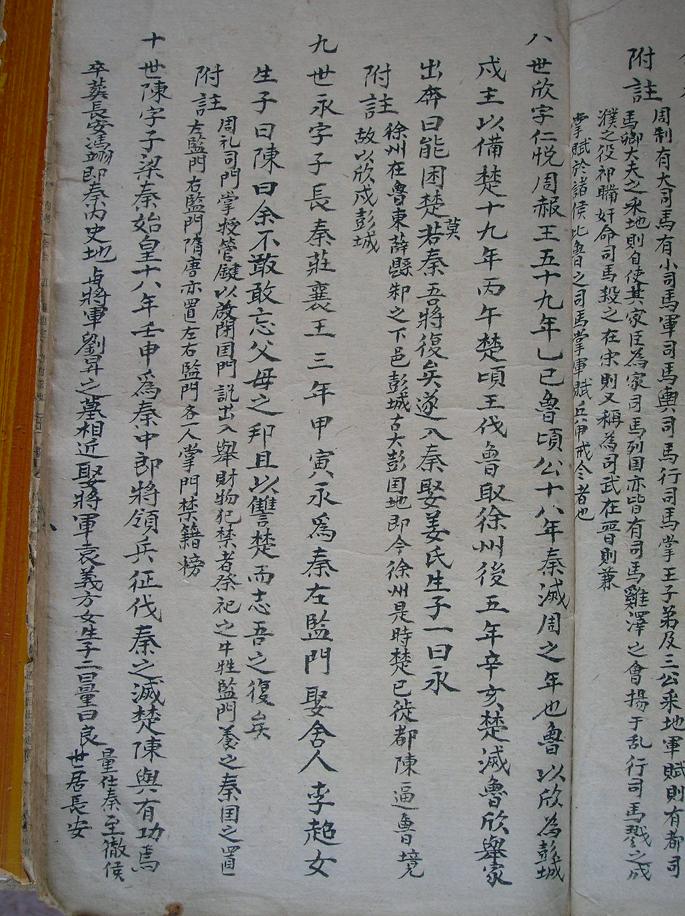 附註
周制有大司馬有小司馬軍司馬輿司馬行司馬掌王子弟及三公釆地軍賦則有都司
馬卿大夫之釆地則自使其家臣為家司馬列国亦皆有司馬雞澤之會揚于乱行司馬戮之成
濮之役祁瞞奸命司馬殺之在宋則又稱為司武在晉則兼
掌賦於諸侯此魯之司馬掌軍賦兵甲戒令者也
八世欣字仁悅周赧王五十九年乙巳魯頃公十八年秦滅周之年也魯以欣為彭城
戍主以備楚十九年丙午楚頃王伐魯取徐州後五年辛亥楚滅魯欣舉家
出奔曰能困楚莫若秦吾將復矣遂入秦娶姜氏生子一曰永
附註
徐州在魯東薛縣邾之下邑彭城古大彭国地即今徐州是時楚已徙都陳逼魯境
故以欣戍彭城
九世永字子長秦莊襄王三年甲寅永爲秦左監門娶舍人李超女
生子曰陳曰余不敢忘父母之邦且以讐楚而志吾之復矣
附註
周礼司門掌授管鍵以啟閉国門説出入舉財物犯禁者祭祀之牛牲監門养之秦国之置
左監門右監門隋唐亦置左右監門各一人掌門禁籍榜
十世陳字子梁秦始皇十八年壬申爲秦中郎將領兵征伐秦之滅楚陳與有功焉
卒葬長安馮翊即秦內史地与將軍劉昇之墓相近娶將軍袁義方女生子二曰量曰良
量仕秦至徹侯
世居長安